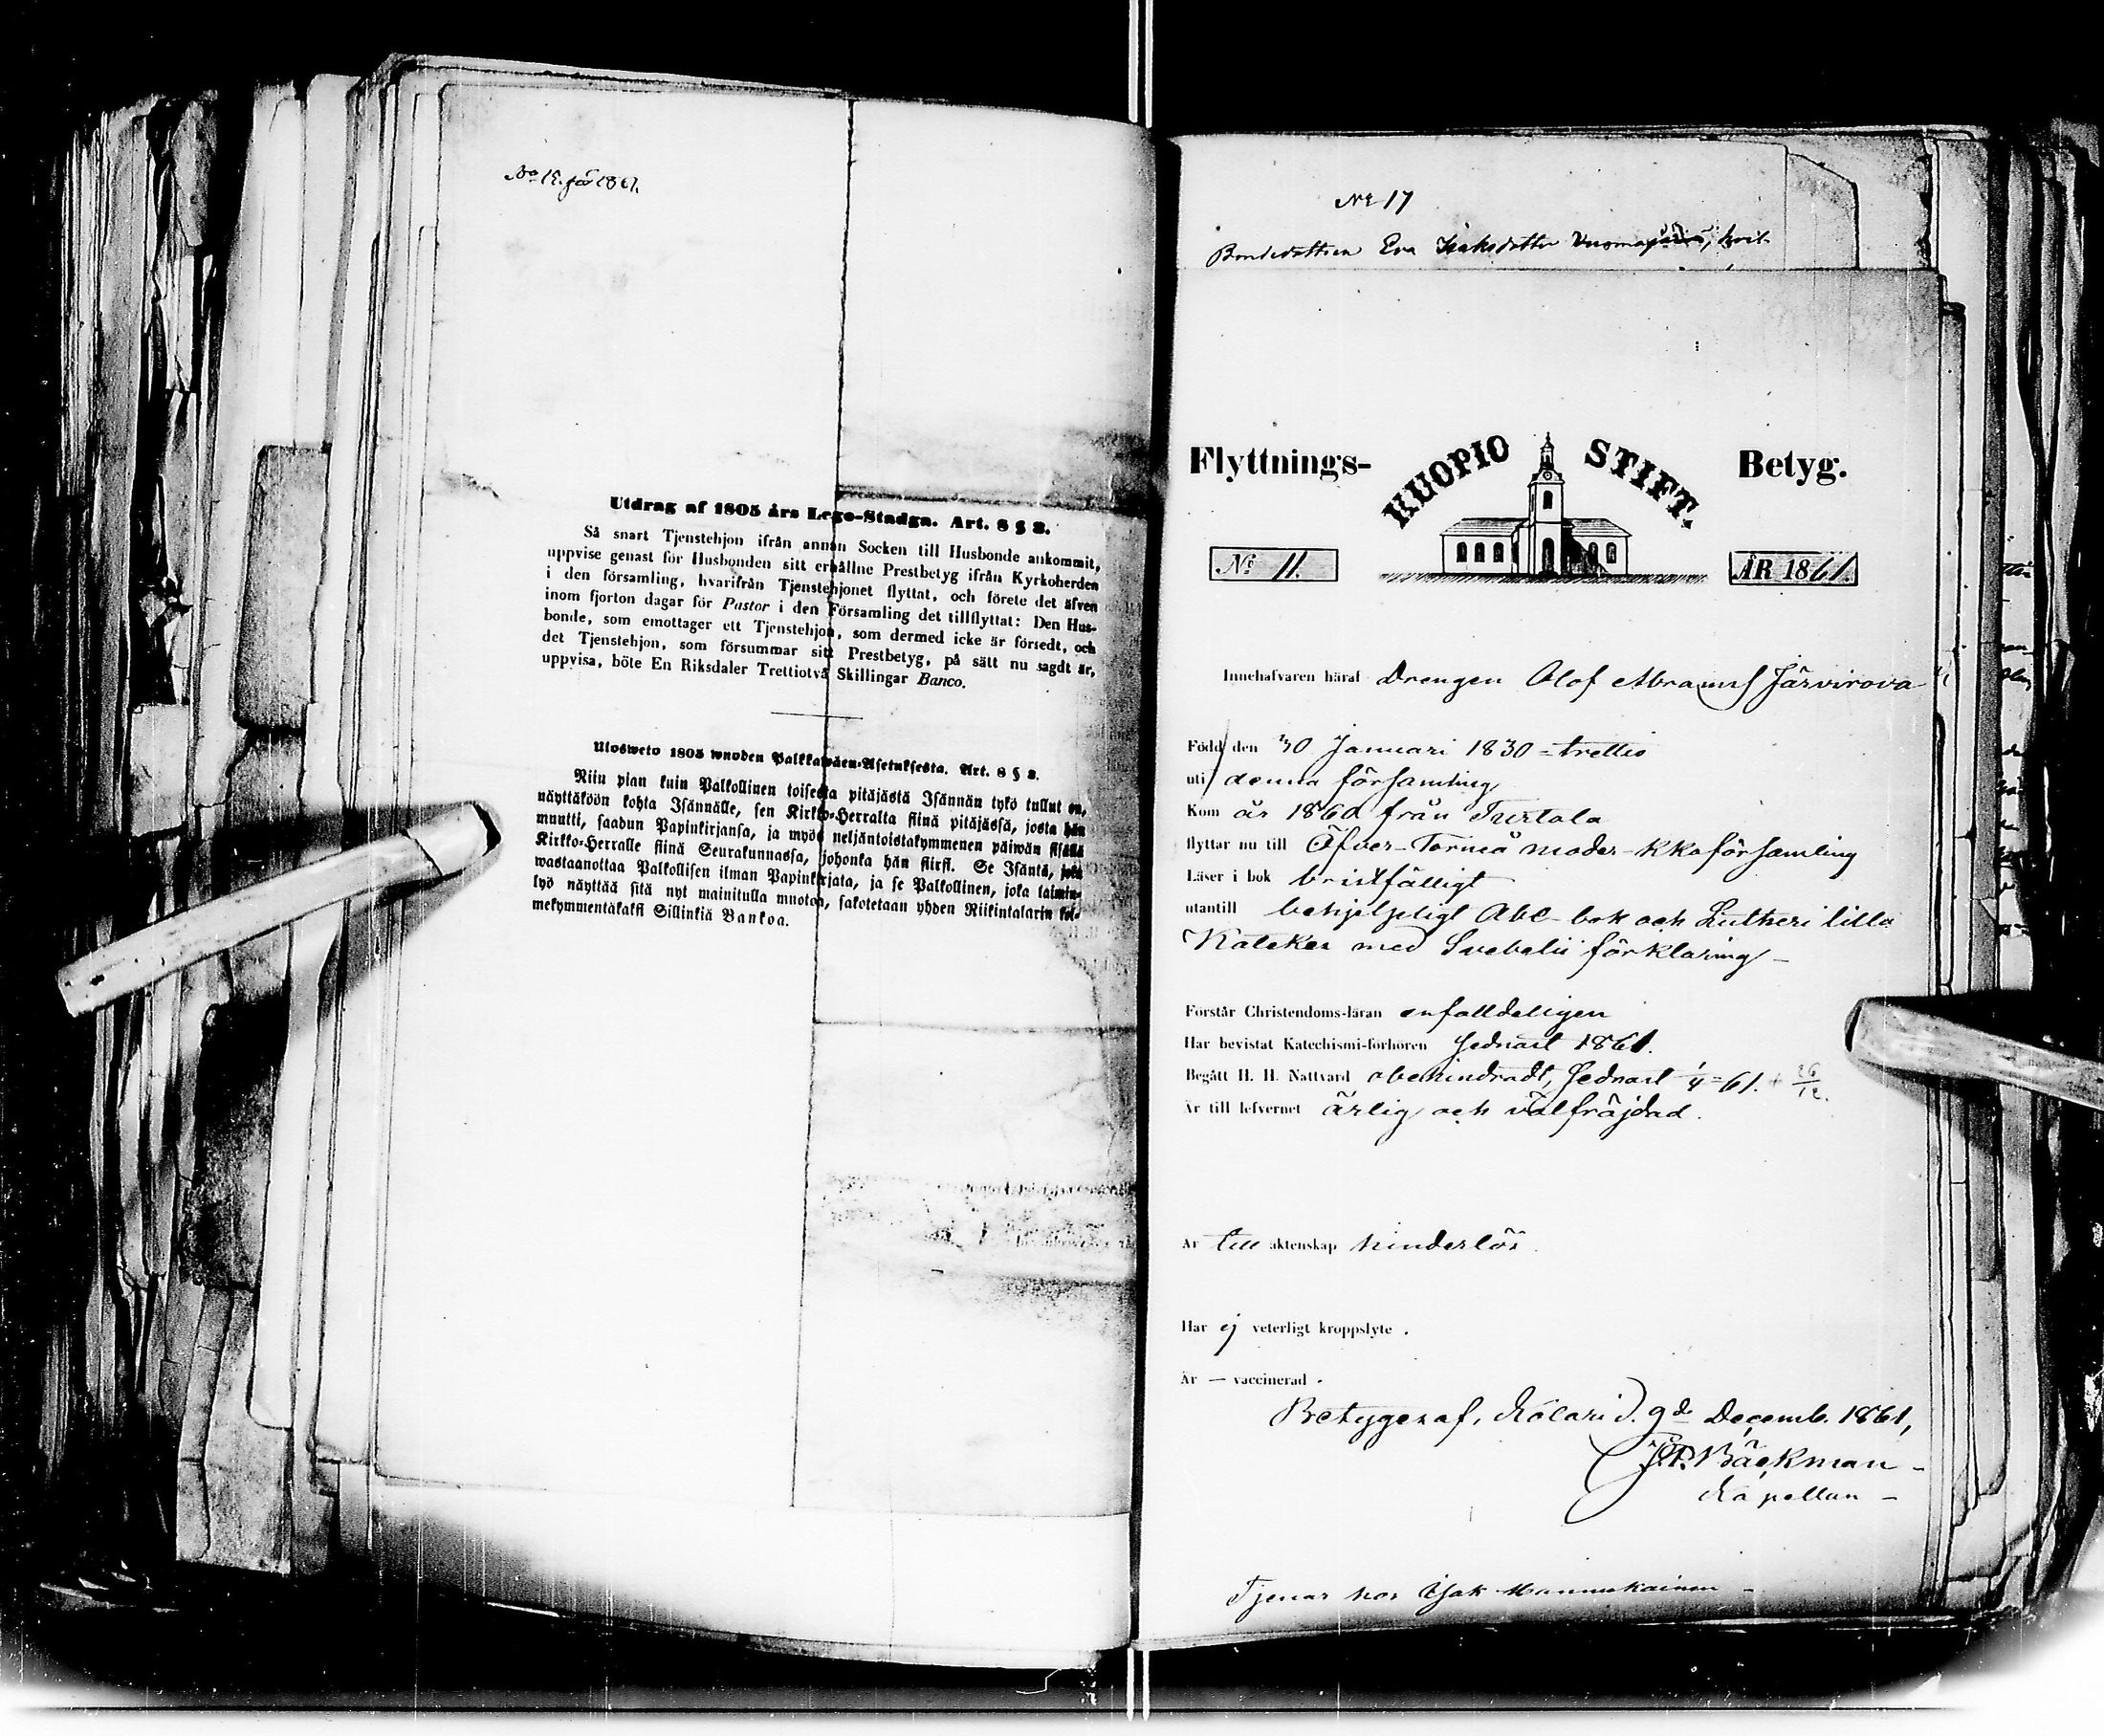 No 18. för 1861.
Utdrag af 1805 års Lego-Stadga. Art. 8 § 2.
Så snart Tjenstehjon ifrån annan Socken till Husbonde ankommit,
uppvise genast för Husbonden sitt erhållne Prestbetyg ifrån Kyrkoherden
i den församling, hvarifrån Tjenstehjonet flyttat, och förete det äfven
inom fjorton dagar för Pastor i den Församling det tillflyttat: Den Hus-
bonde, som emottager ett Tjenstehjon, som dermed icke är försedt, och
det Tjenstehjon, som försummar sitt Prestbetyg, på sätt nu sagdt är,
uppvisa, böte En Riksdaler Trettiotvå Skillingar Banco.
Ulosweto 1805 wuoden Palkkawäen-Asetuksesta. Art. 8 § 2.
Niin pian kuin Palkollinen toisesta pitäjästä Isännän tykö tullut on,
näyttäköön kohta Isännälle, sen Kirkko-Herralta siinä pitäjässä, josta hän
muutti, saadun Papinkirjansa, ja myös neljäntoistakymmenen päiwän sisällä
Kirkko-Herralle siinä Seurakunnassa, johonka hän siirsi. Se Isäntä, joka
wastaanottaa Palkollisen ilman Papinkirjata, ja se Palkollinen, joka laimin-
lyö näyttää sitä nyt mainitulla muotoa, sakotetaan yhden Riikintalarin kol-
mekymmentäkaksi Sillinkiä Bankoa.
No 17
Bondedottren Eva Isaksdotter
Flyttnings- HUOPIO STIFT. Betyg.
No 11. ÅR 1861.
Innehafvaren häraf Drengen Olof Abramsf Järvirova
Född den 30 Januari 1830 = trettio
uti denna församling
Kom år 1860 från Turtola
flyttar nu till Öfver-Torneå moder-kkoförsamling
Läser i bok bristfälligt
utantill behjelpligt Abc-bok och Lutheri lilla
Katekes med Svebelii förklaring -
Förstår Christendoms-läran enfalldeligen
Har bevistat Katechismi-förhören sednast 1861.
Begått H. H. Nattvard obehindradt, sednast 1/4 = 61. + 26/12.
Är till lefvernet ärlig och välfräjdad.
Är till äktenskap hinderlös.
Har ej veterligt kroppslyte .
Är — vaccinerad .
Betygas af, Kolari d. 9de Decemb. 1861,
J.P. Bäckman -
Kapellan -
Tjenar hos Isak Mannukainen -